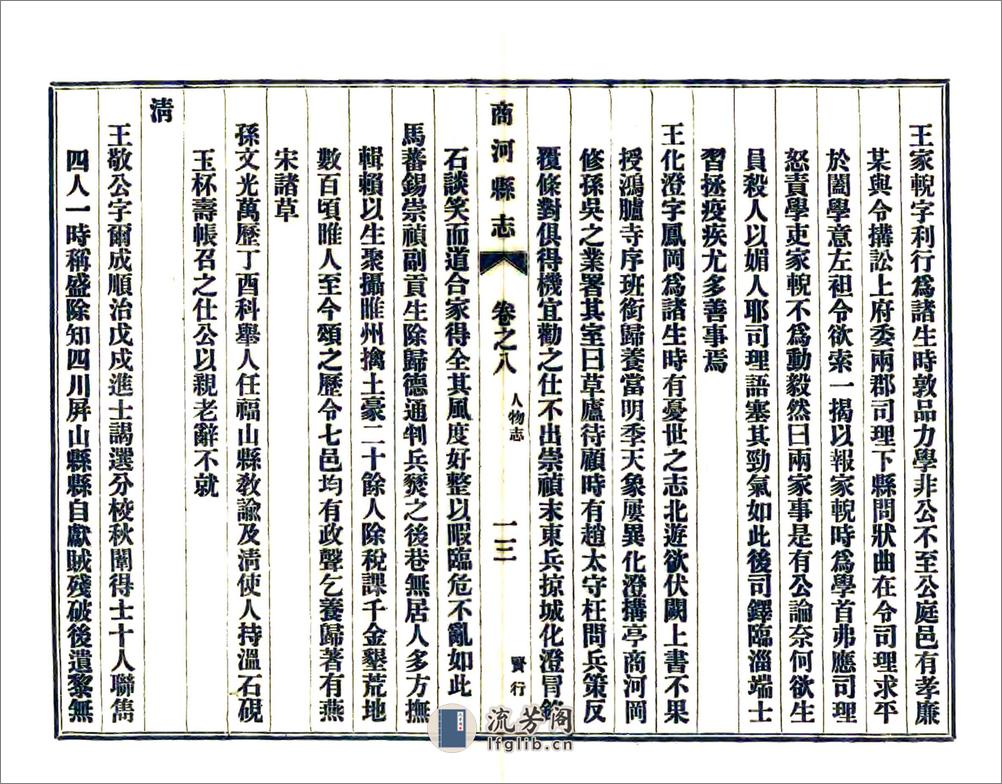 王家輗字利行爲諸生時敦品力學非公不至公庭邑有孝廉
某與令搆訟上府委兩郡司理下縣問狀曲在令司理求平
於闔學意左祖令欲索一揭以報家輗時爲學首弗應司理
怒責學吏家輗不爲動毅然曰兩家事是有公論奈何欲生
員殺人以媚人耶司理語塞其勁氣如此後司鐸臨淄端士
習拯疫疾尤多善事焉
王化澄字鳳岡爲諸生時有憂世之志北遊欲伏闕上書不果
授鴻臚寺序班銜歸養當明季天象屢異化澄搆亭商河岡
修孫吳之業署其室曰草廬待顧時有趙太守枉問兵策反
覆條對俱得機宜勸之仕不出崇禎末東兵掠城化澄冒鋒
商河縣志
卷之八
人物志
一三
賢行
石談笑而道合家得全其風度好整以暇臨危不亂如此
馬蕃錫崇禎副貢生除歸德通判兵燹之後巷無居人多方撫
輯賴以生聚攝睢州擒土豪二十餘人除稅課千金墾荒地
數百頃睢人至今頌之歷令七邑均有政聲乞養歸著有燕
宋諸草
孫文光萬歷丁酉科舉人任福山縣教諭及淸使人持溫石硯
玉杯壽帳召之仕公以親老辭不就
淸
王敬公字爾成順治戊戌進士謁選分校秋闈得士十人聯雋
四人一時稱盛除知四川屏山縣縣自獻賊殘破後遺黎無
流芳阁
lfglib.cn